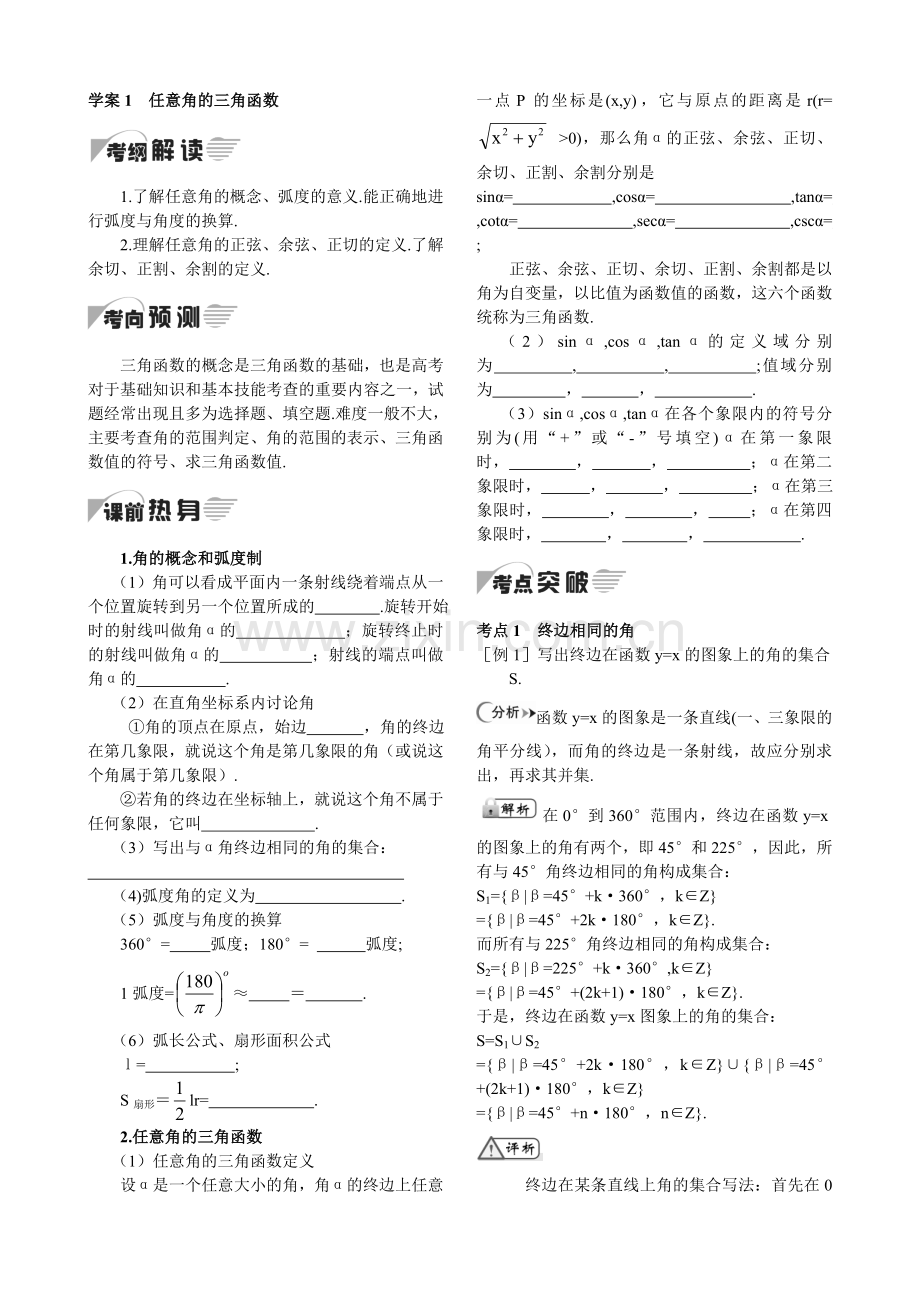 学案1 任意角的三角函数
考纲解读
1.了解任意角的概念、弧度的意义.能正确地进
行弧度与角度的换算.
2.理解任意角的正弦、余弦、正切的定义.了解
余切、正割、余割的定义.
考向预测
三角函数的概念是三角函数的基础，也是高考
对于基础知识和基本技能考查的重要内容之一，试
题经常出现且多为选择题、填空题.难度一般不大，
主要考查角的范围判定、角的范围的表示、三角函
数值的符号、求三角函数值.
课前热身
1.角的概念和弧度制
（1）角可以看成平面内一条射线绕着端点从一
个位置旋转到另一个位置所成的________.旋转开始
时的射线叫做角α的____________；旋转终止时
的射线叫做角α的__________；射线的端点叫做
角α的__________.
（2）在直角坐标系内讨论角
①角的顶点在原点，始边______，角的终边
在第几象限，就说这个角是第几象限的角（或说这
个角属于第几象限）.
②若角的终边在坐标轴上，就说这个角不属于
任何象限，它叫____________.
（3）写出与α角终边相同的角的集合：
________________________________
(4)弧度角的定义为________________.
（5）弧度与角度的换算
360°=____弧度；180°= _____弧度;
1弧度=(180/π)°≈____＝______.
（6）弧长公式、扇形面积公式
l=_________;
S扇形＝1/2 lr=___________.
2.任意角的三角函数
（1）任意角的三角函数定义
设α是一个任意大小的角，角α的终边上任意
一点P的坐标是(x,y)，它与原点的距离是r(r=
√(x²+y²) >0)，那么角α的正弦、余弦、正切、
余切、正割、余割分别是
sinα=__________,cosα=______________,tanα=
,cotα=____________,secα=____________,cscα=
;
正弦、余弦、正切、余切、正割、余割都是以
角为自变量，以比值为函数值的函数，这六个函数
统称为三角函数.
（2）sinα,cosα,tanα的定义域分别
为________,_________,_________;值域分别
为________，______，__________.
（3）sinα,cosα,tanα在各个象限内的符号分
别为(用“+”或“-”号填空)α在第一象限
时，_______，______，_________；α在第二
象限时，_____，______，_________；α在第三
象限时，_______，_________，____；α在第四
象限时，_______，________，__________.
考点突破
考点1 终边相同的角
［例1］写出终边在函数y=x的图象上的角的集合
S.
分析 函数y=x的图象是一条直线(一、三象限的
角平分线)，而角的终边是一条射线，故应分别求
出，再求其并集.
解析 在0°到360°范围内，终边在函数y=x
的图象上的角有两个，即45°和225°，因此，所
有与45°角终边相同的角构成集合：
S₁={β|β=45°+k·360°，k∈Z}
={β|β=45°+2k·180°，k∈Z}.
而所有与225°角终边相同的角构成集合：
S₂={β|β=225°+k·360°,k∈Z}
={β|β=45°+(2k+1)·180°，k∈Z}.
于是，终边在函数y=x图象上的角的集合：
S=S₁∪S₂
={β|β=45°+2k·180°，k∈Z}∪{β|β=45°
+(2k+1)·180°，k∈Z}
={β|β=45°+n·180°，n∈Z}.
评析
终边在某条直线上角的集合写法：首先在0
www.zixin.com.cn